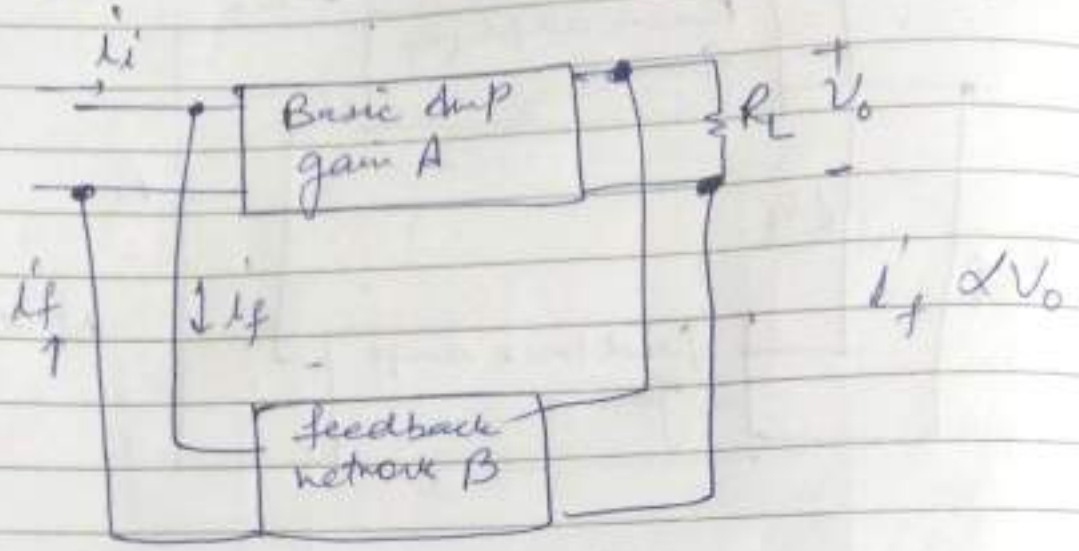 i_i
Basic Amp
gain A
+
V_o
-
R_L
i_f
↑
↓ i_f
i_f ∝ V_o
feedback
network β